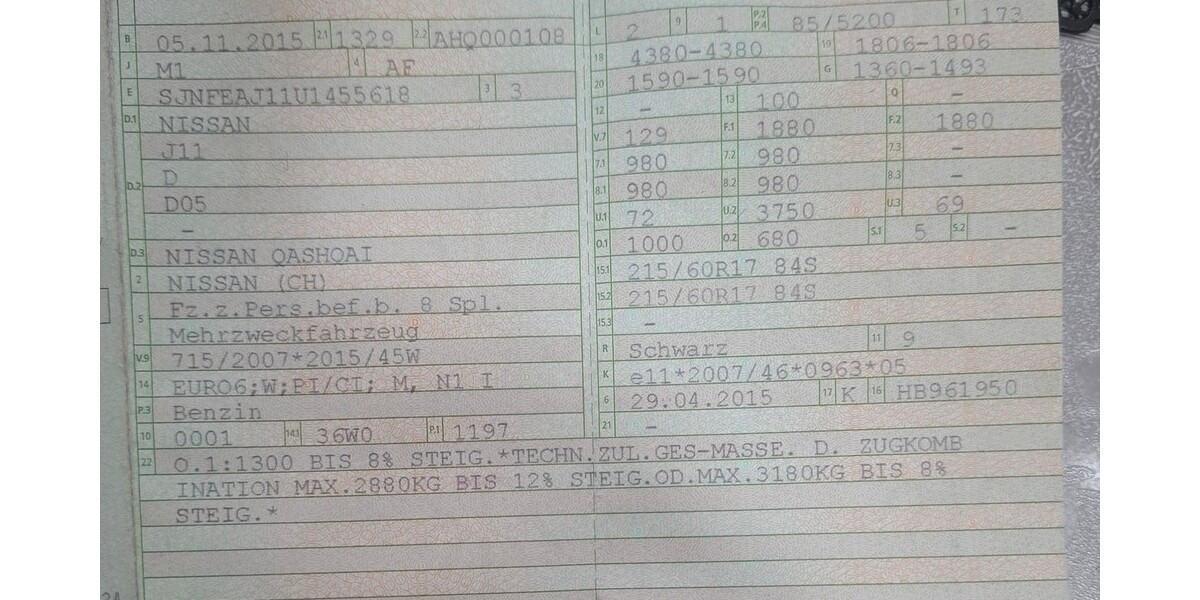 B 05.11.2015 2.1 1329 2.2 AHQ000108
J M1 4 AF
E SJNFEAJ11U1455618 3 3
D.1 NISSAN
J11
D.2 D
D05
–
D.3 NISSAN QASHQAI
2 NISSAN (CH)
5 Fz.z.Pers.bef.b. 8 Spl.
Mehrzweckfahrzeug
V.9 715/2007*2015/45W
14 EURO6;W;PI/CI; M, N1 I
P.3 Benzin
10 0001 14.1 36W0 P.1 1197
L 2 9 1 P.2 P.4 85/5200 T 173
18 4380-4380 19 1806-1806
20 1590-1590 G 1360-1493
12 – 13 100 Q –
V.7 129 F.1 1880 F.2 1880
7.1 980 7.2 980 7.3 –
8.1 980 8.2 980 8.3 –
U.1 72 U.2 3750 U.3 69
O.1 1000 O.2 680 S.1 5 S.2 –
15.1 215/60R17 84S
15.2 215/60R17 84S
15.3 –
R Schwarz 11 9
K e11*2007/46*0963*05
6 29.04.2015 17 K 16 HB961950
21 –
22 O.1:1300 BIS 8% STEIG.*TECHN.ZUL.GES-MASSE. D. ZUGKOMB
INATION MAX.2880KG BIS 12% STEIG.OD.MAX.3180KG BIS 8%
STEIG.*